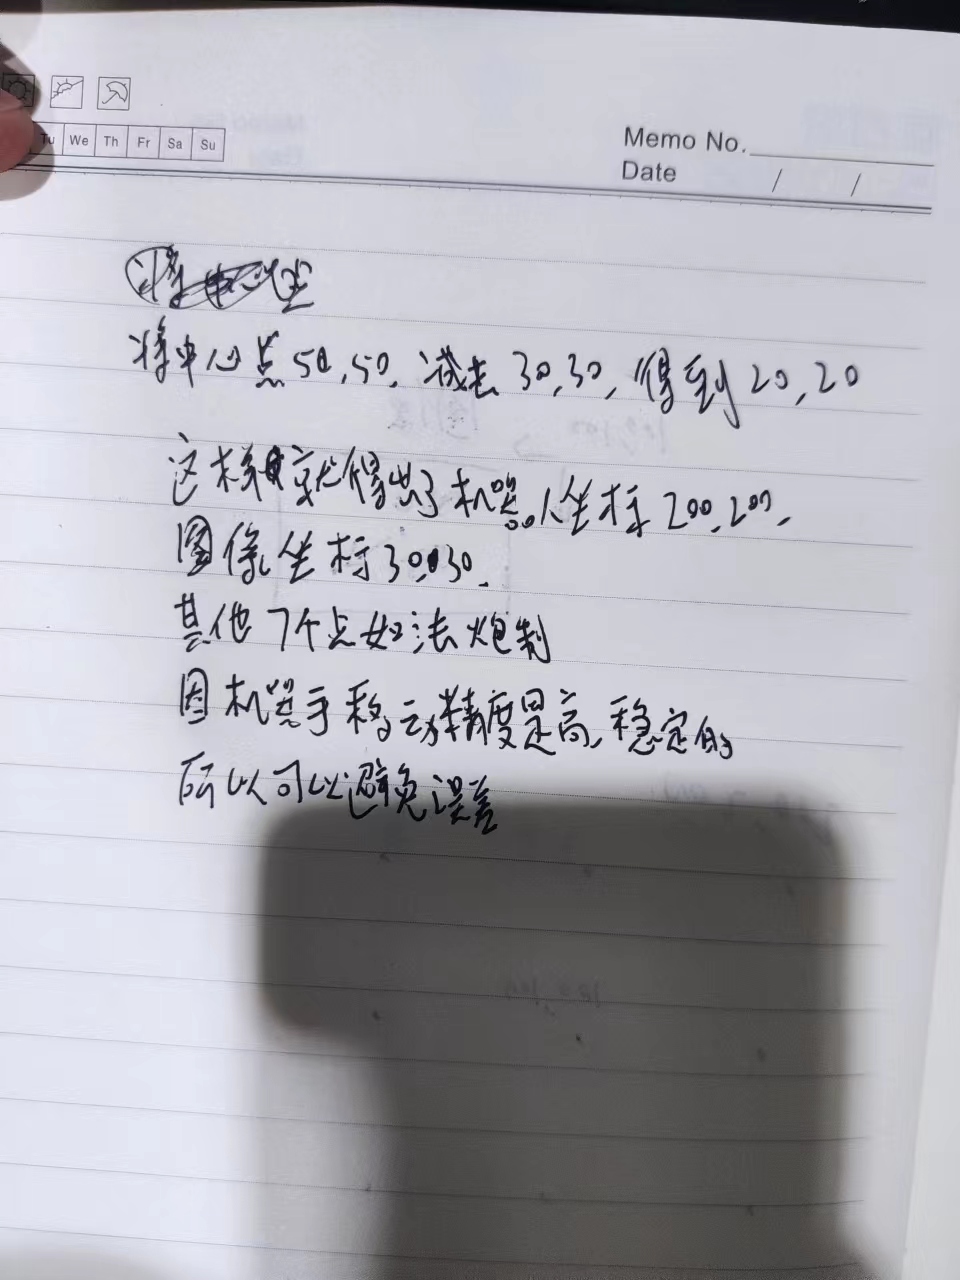 Tu We Th Fr Sa Su
Memo No.
Date / /
将中心点50,50,减去30,30,得到20,20
这样就得出了机器人坐标200,200,
图像坐标30,30.
其他7个点如法炮制
因机器手移动精度是高,稳定的
所以可以避免误差